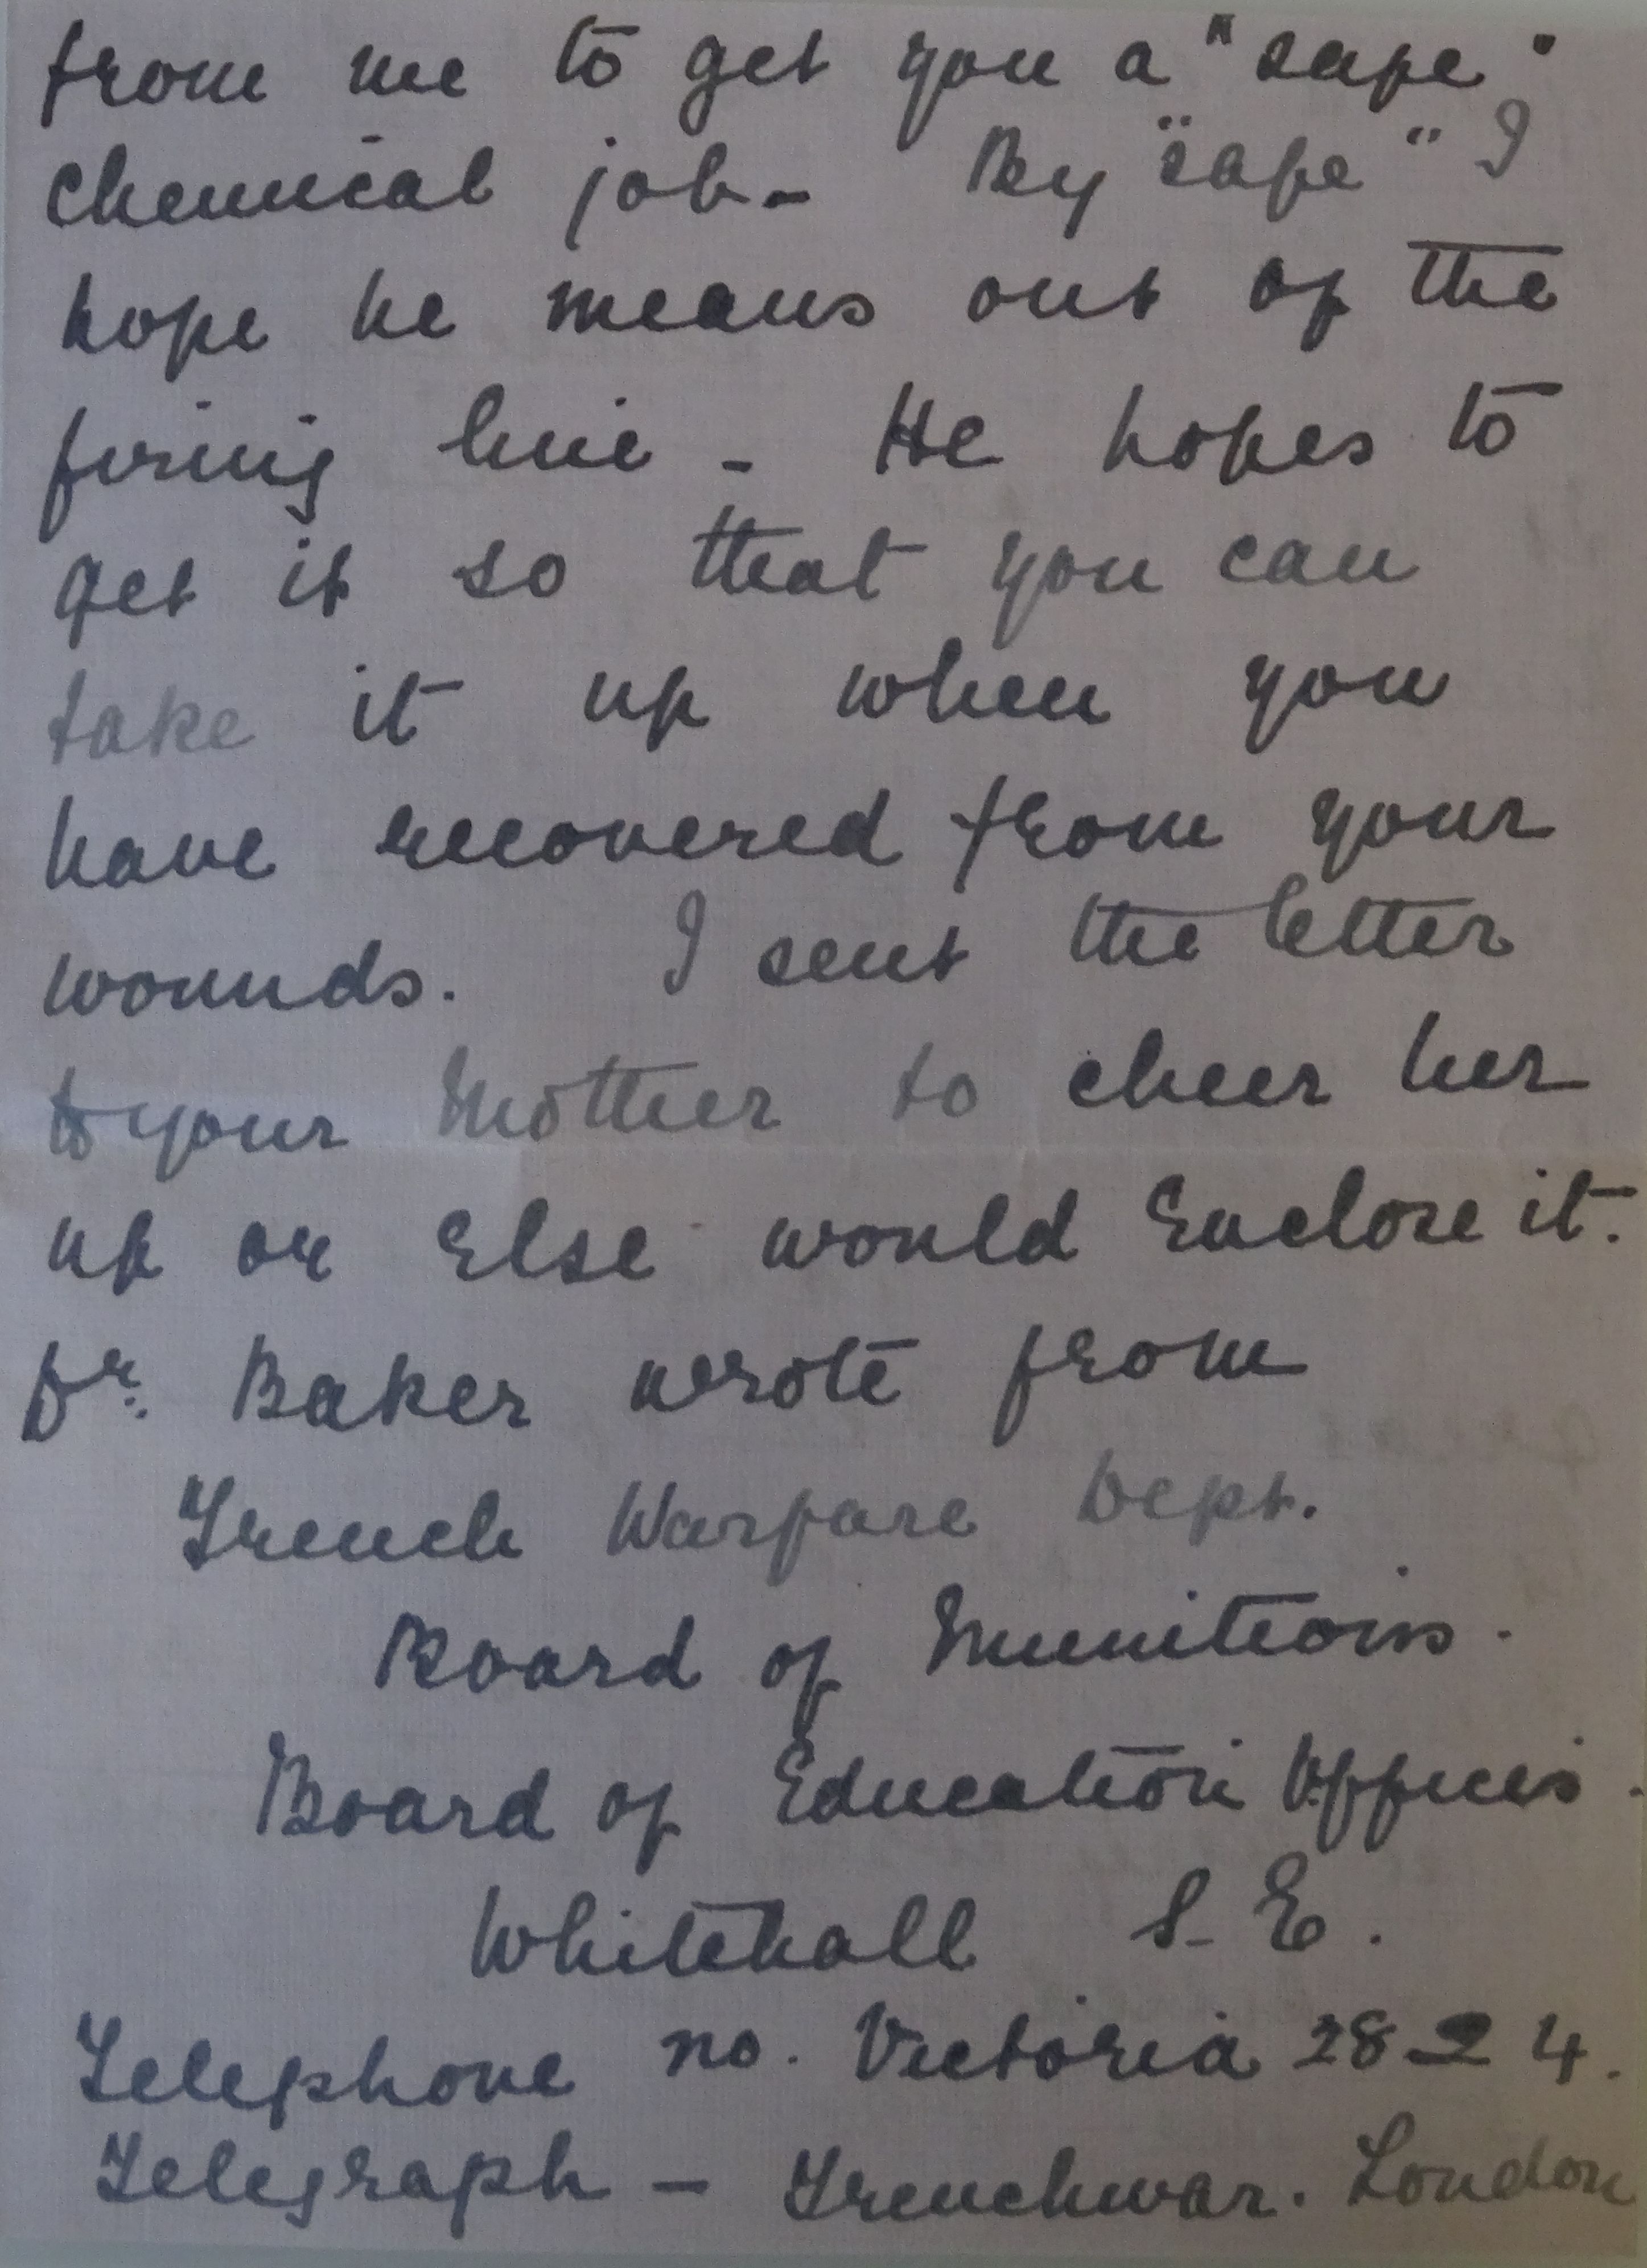 from me to get you a "safe"
chemical job - By "safe" I
hope he means out of the
firing line - He hopes to
get it so that you can
take it up when you
have recovered from your
wounds. I sent the letter
to your Mother to cheer her
up or else would Enclose it.
Dr. Baker wrote from
Trench Warfare Dept.
Board of Munitions.
Board of Education Offices.
Whitehall S. E.
Telephone no. Victoria 2824.
Telegraph - Trenchwar. London